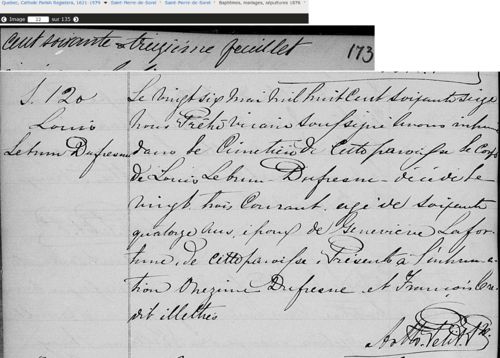 Quebec, Catholic Parish Registers, 1621-1979 Saint-Pierre-de-Sorel Saint-Pierre-de-Sorel Baptêmes, mariages, sépultures 1876
Image 22 sur 135
cent soixante & treizième feuillet 173
S. 120
Louis
Lebrun Dufresne
Le vingt six mai mil huit cent soixante seize
nous Prêtre vicaire soussigné avons inhumé
dans le Cimetière de cette paroisse le Corps
de Louis Lebrun Dufresne décidé le
vingt trois Courant agé de soixante
quatorze Ans, époux de Geneviève Lafor-
tune, de cette paroisse; Présents à l'inhuma-
tion Onezime Dufresne et François
dit illettrés